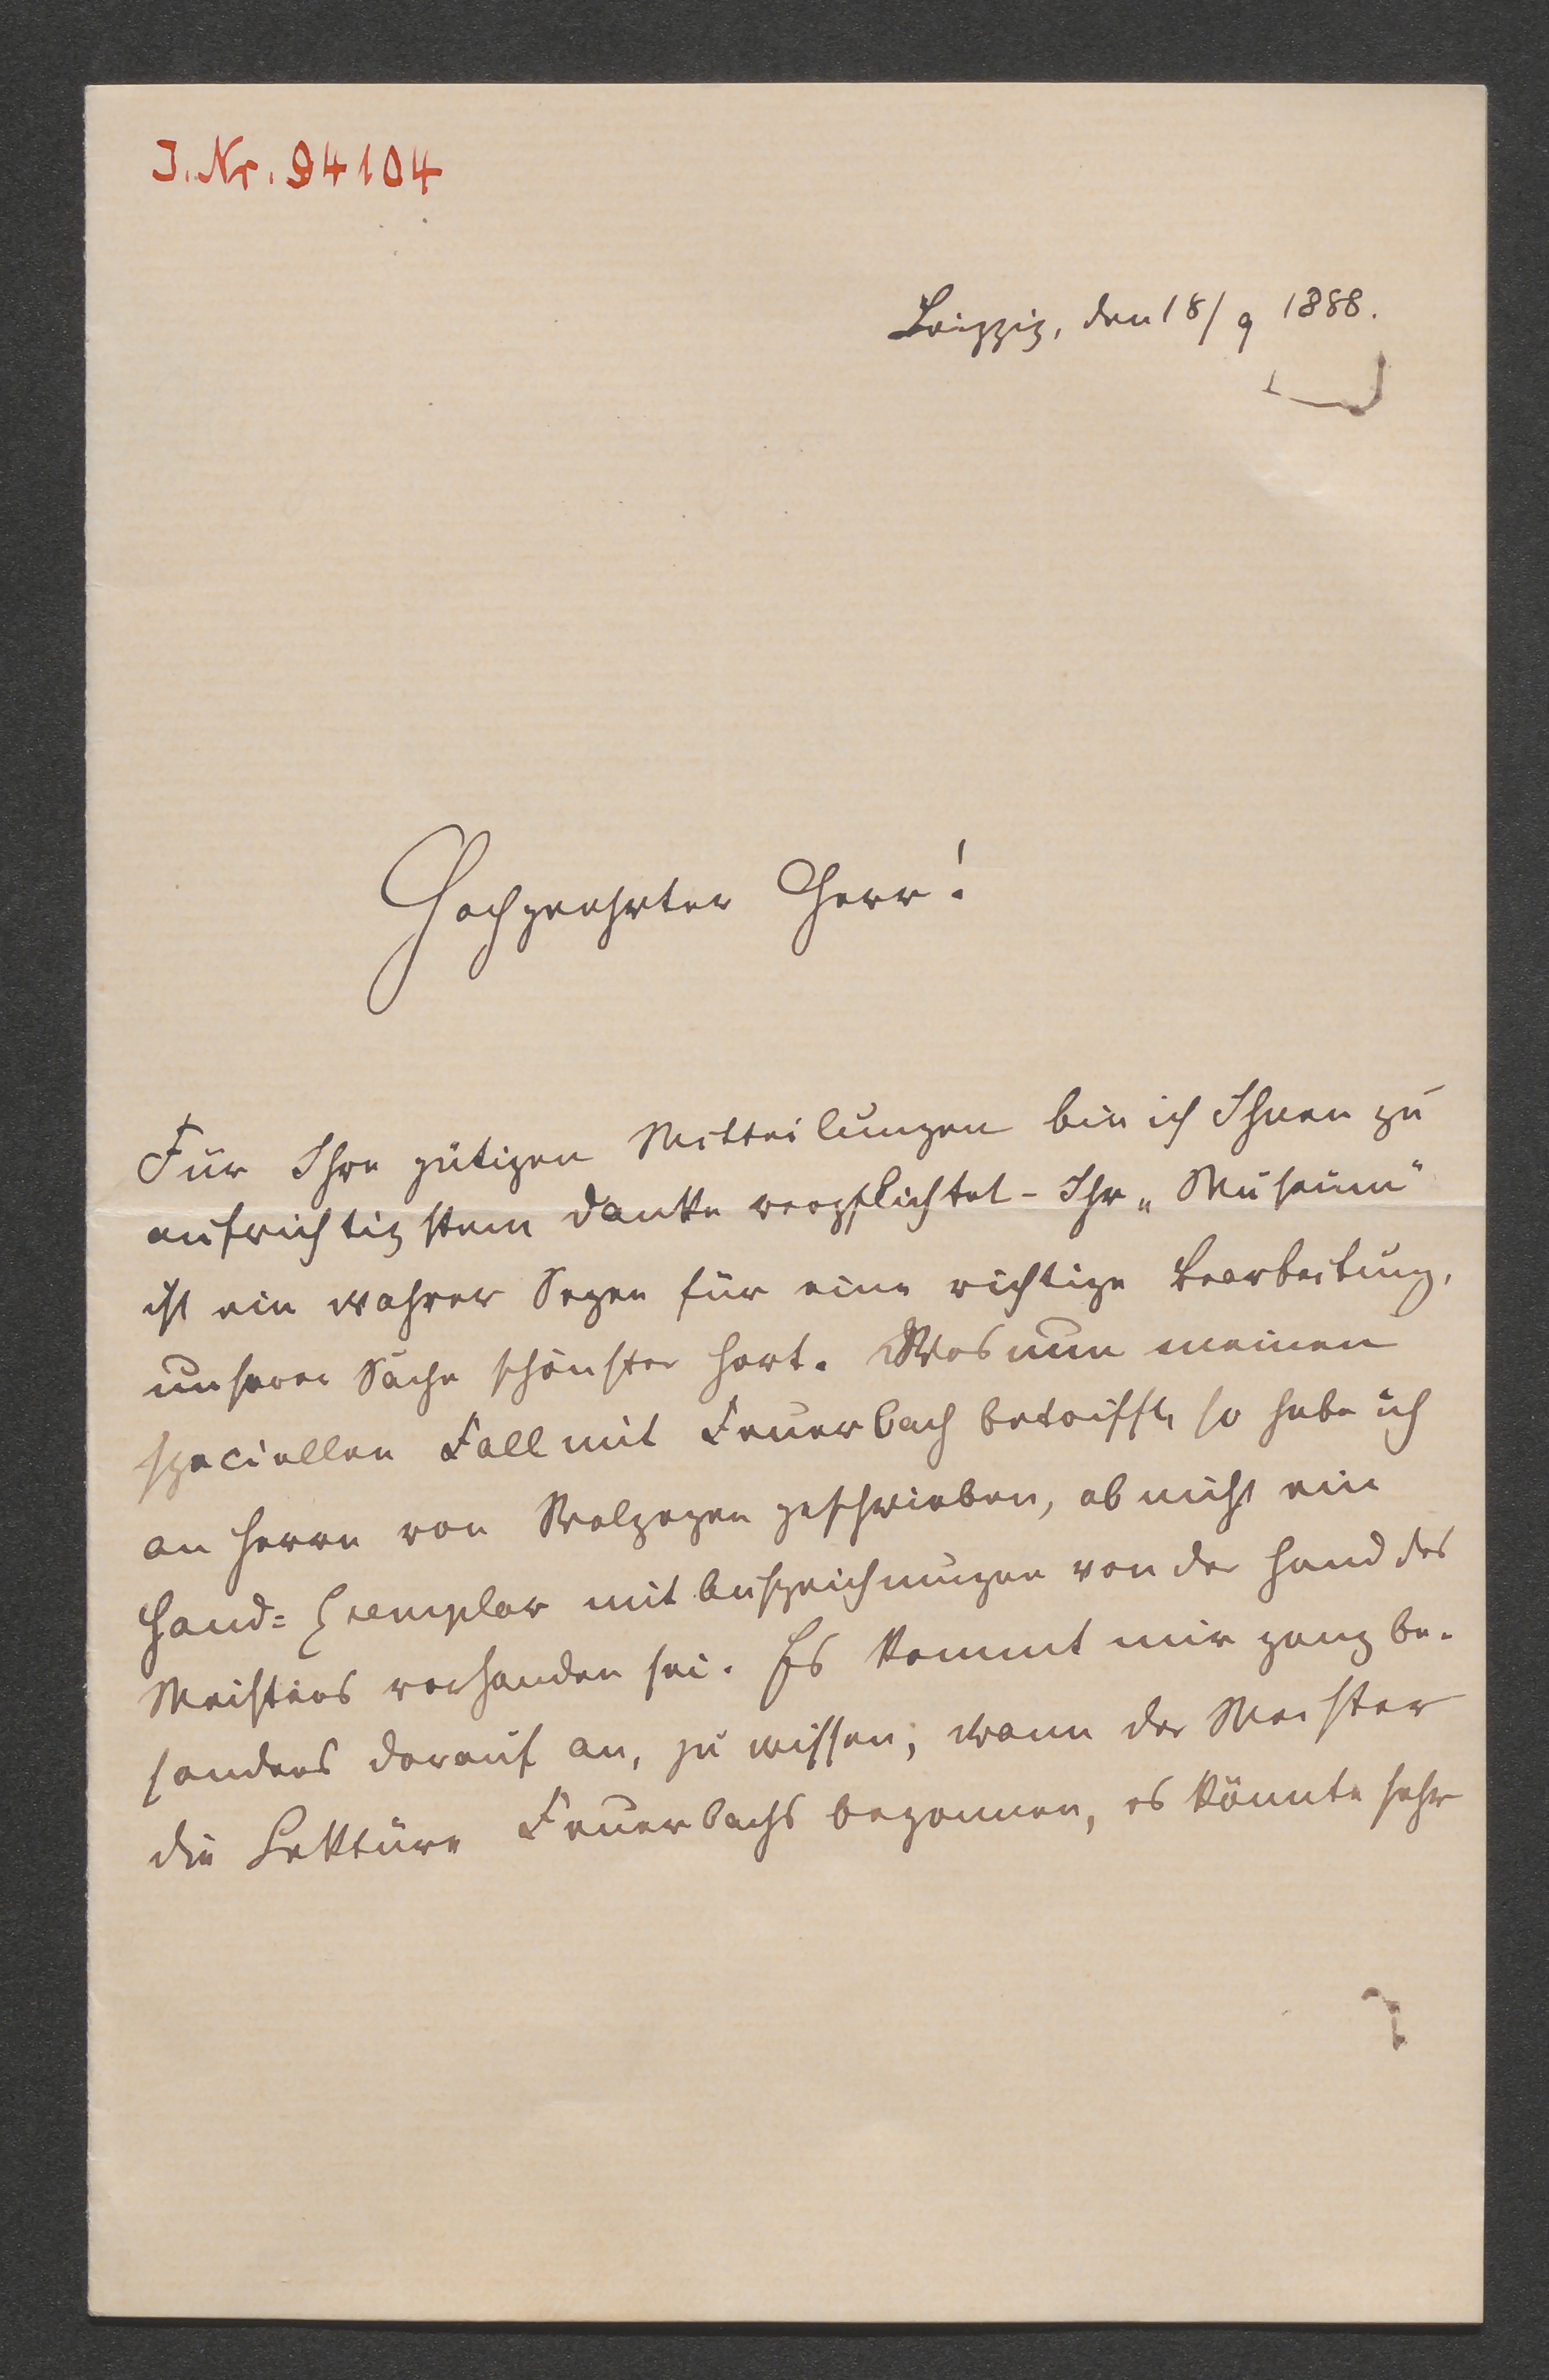 J. Nr. 94104
Leipzig, den 18/9 1888.
Hochgeehrter Herr!
Für Ihre gütigen Mitteilungen bin ich Ihnen zu
aufrichtigstem Danke verpflichtet - Ihr „Museum“
ist ein wahrer Segen für eine richtige Bearbeitung,
unserer Sache schönster Hort. Was nun meinen
speciellen Fall mit Feuerbach betrifft, so habe ich
an Herrn von Wolzogen geschrieben, ob nicht ein
Hand=Exemplar mit Aufzeichnungen von der Hand des
Meisters vorhanden sei. Es kommt mir ganz be-
sonders darauf an, zu wissen, wann der Meister
die Lektüre Feuerbachs begonnen, es könnte sehr